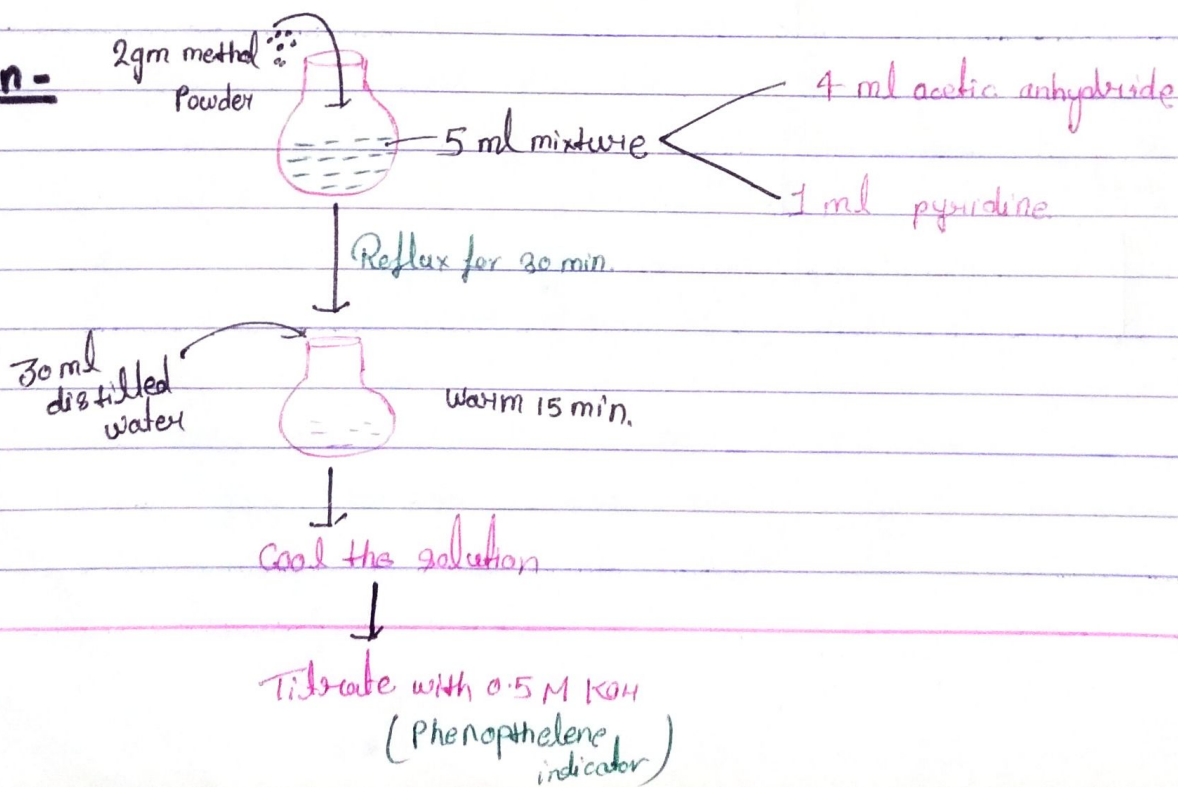 n-
2gm methol
Powder
5 ml mixture
4 ml acetic anhydride
1 ml pyridine
Reflux for 30 min.
30 ml
distilled
water
Warm 15 min.
Cool the solution
Titrate with 0.5 M KOH
(Phenopthelene
indicator)